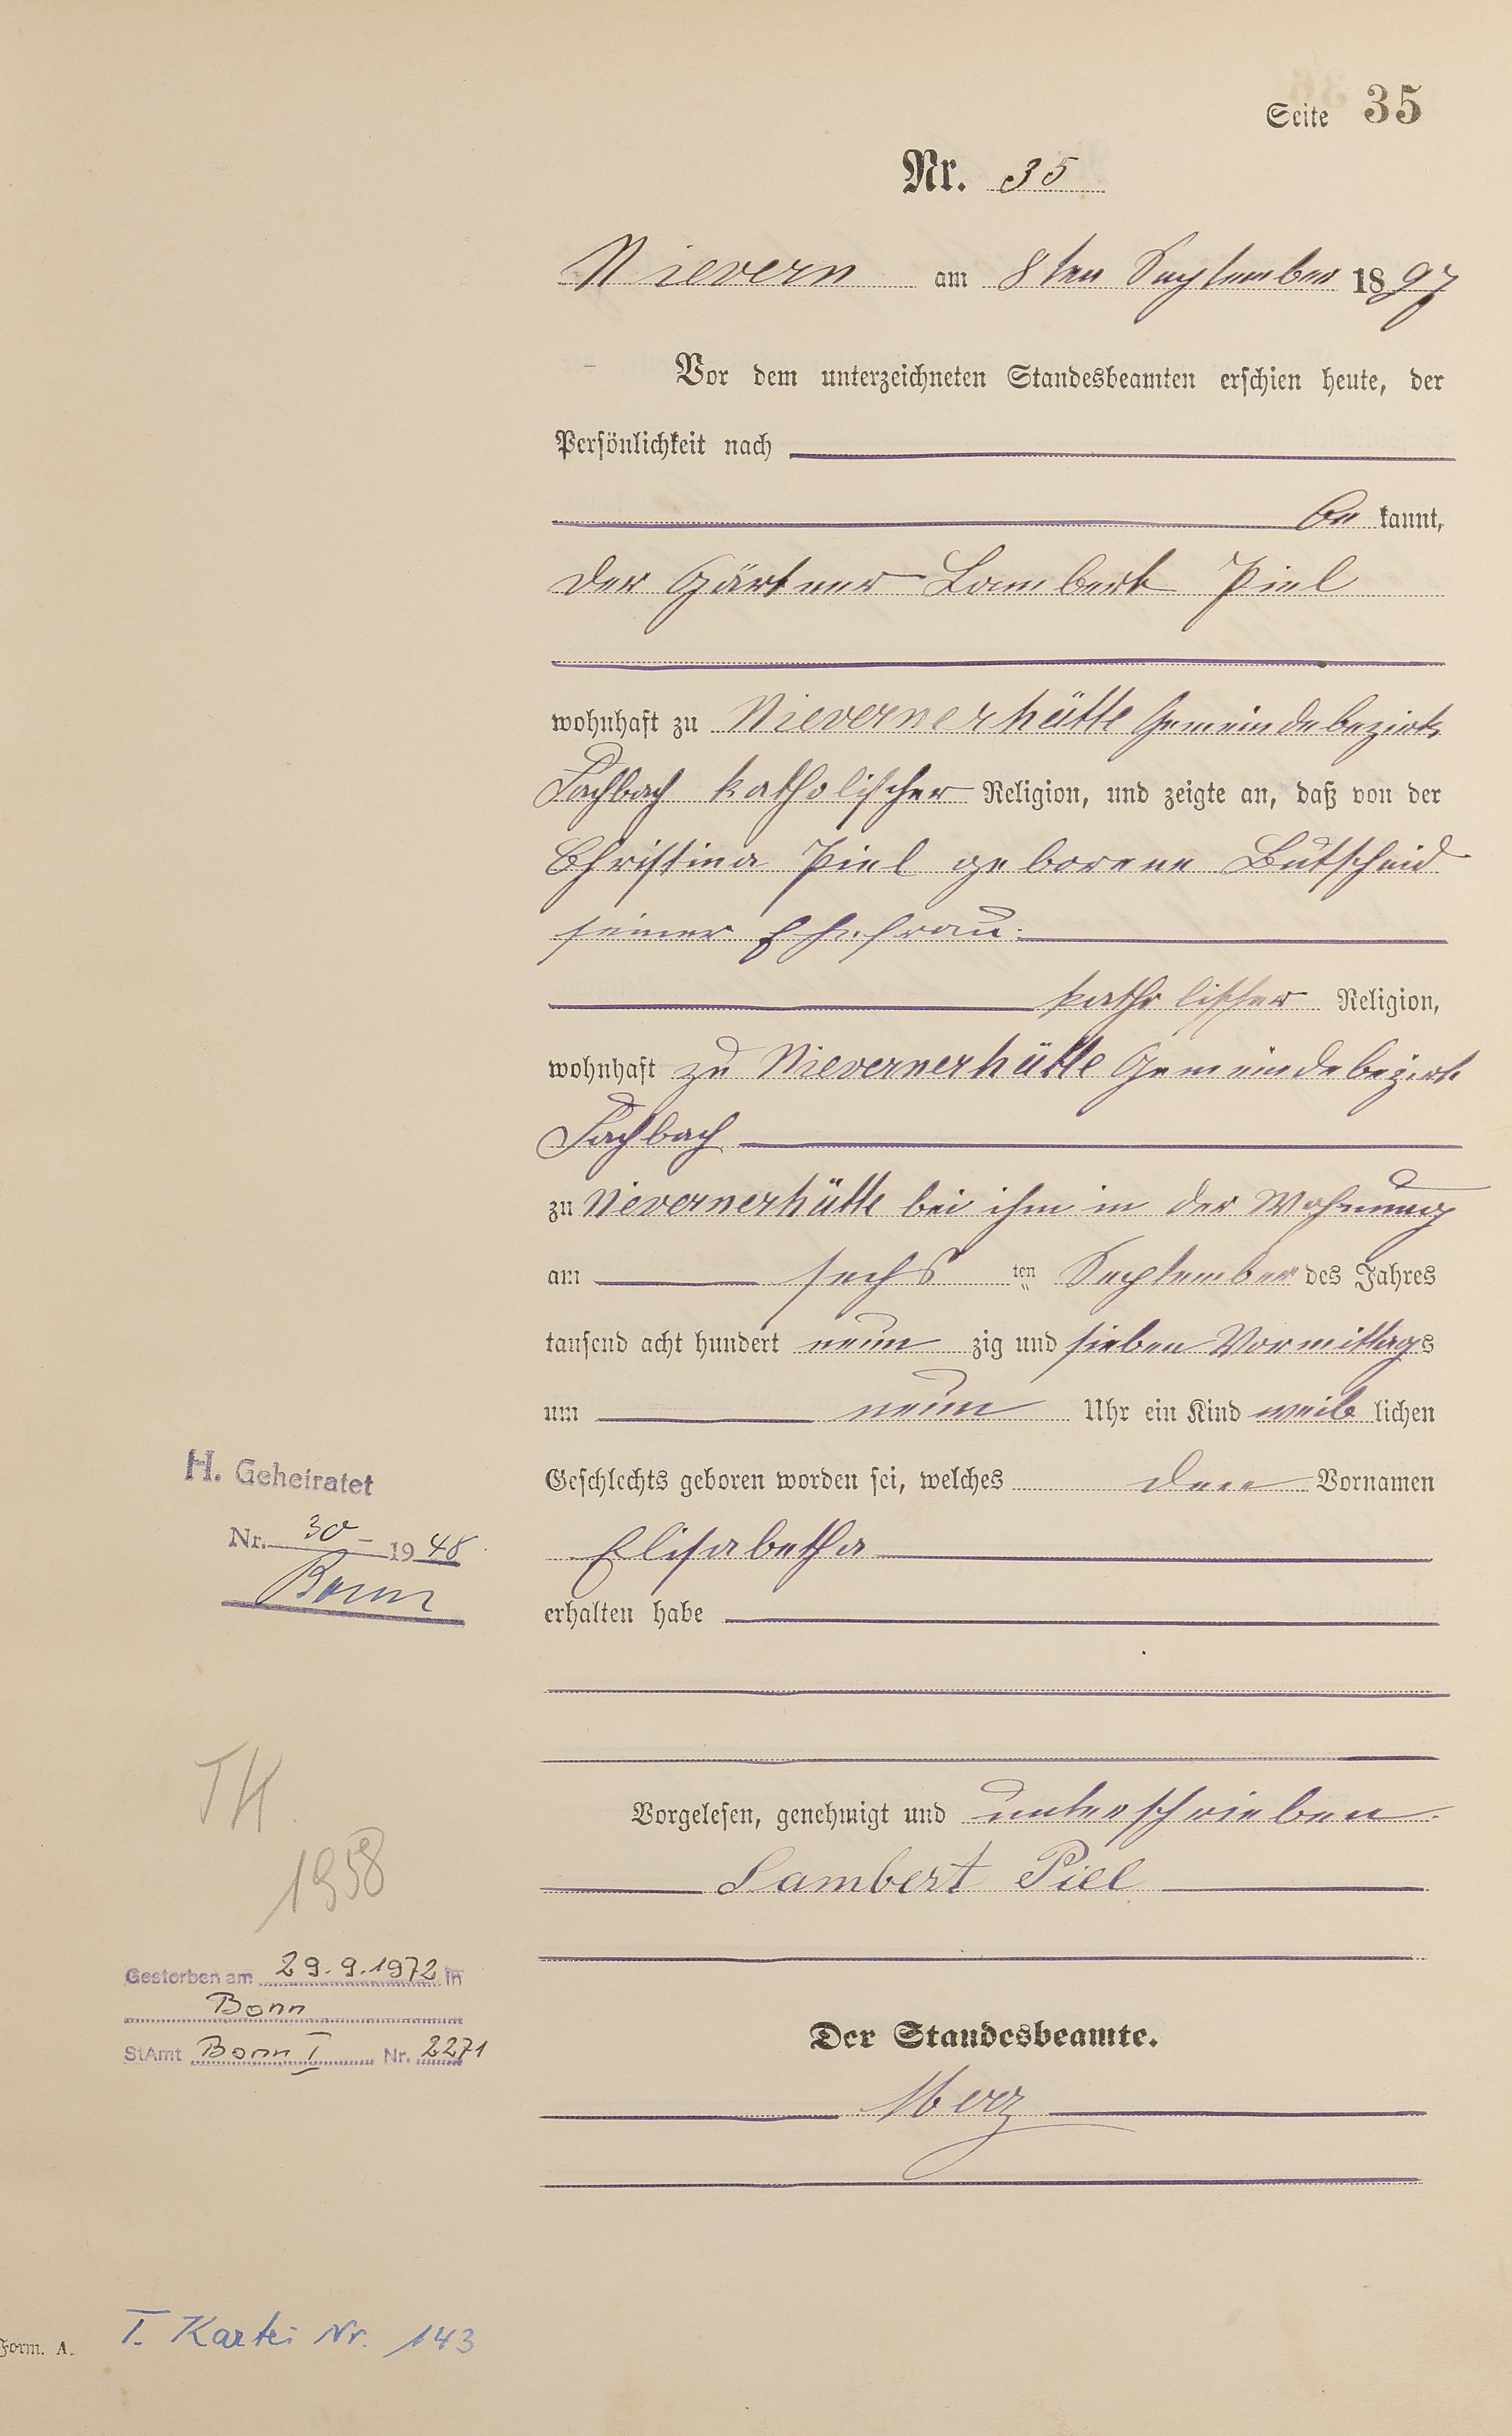 Seite 35
Nr. 35
Nievern am 8ten September 1897
Vor dem unterzeichneten Standesbeamten erschien heute, der
Persönlichkeit nach
be kannt,
der Gärtner Lambert Piel
wohnhaft zu Nievernerhütte Gemeindebezirk
Fachbach katholischer Religion, und zeigte an, daß von der
Christina Piel geborene Butscheid
seiner Ehefrau
katholischer Religion,
wohnhaft zu Nievernerhütte Gemeindebezirk
Fachbach
zu Nievernerhütte bei ihm in der Wohnung
am sechs ten September des Jahres
tausend acht hundert neun zig und sieben Vormittags
um neun Uhr ein Kind weib lichen
Geschlechts geboren worden sei, welches den Vornamen
Elisabetha
erhalten habe
H. Geheiratet
Nr. 30 - 1948
Bonn
Vorgelesen, genehmigt und unterschrieben.
Lambert Piel
TH.
1958
Gestorben am 29.9.1972 in
Bonn
StAmt Bonn I Nr. 2271
Der Standesbeamte.
Merz
T. Kartei Nr. 143
Form. A.